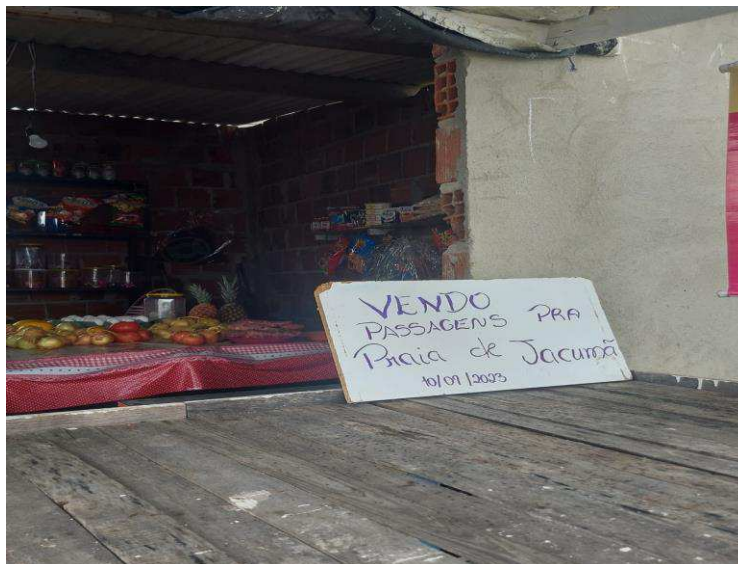 VENDO
PASSAGENS PRA
Praia de Jacumã
10/09/2023